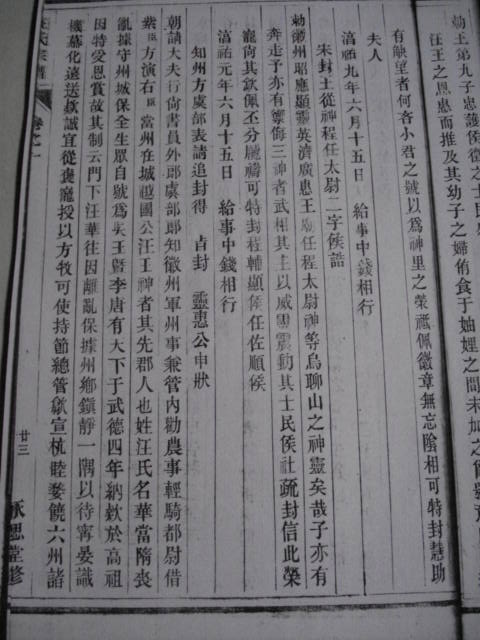 勑王第九子忠護侯
汪王之恩惠而推及其幼子之婦侑食于妯娌之間未加之
有缺望者何吝小君之號以爲神里之榮祗佩徽章無忘陰相可特封慧助
夫人
淳祐九年六月十五日　給事中錢相行
宋封王從神程任太尉二字侯誥
勅徽州昭應顯靈英濟廣惠王廟任程太尉神等烏聊山之神靈矣哉子亦有
奔走予亦有禦侮三神者武相其主以威靈震動其士民侯社疏封信此榮
寵尚其歆佩丕分廟禱可特封程輔顯侯任佐順侯
淳祐元年六月十五日　給事中錢相行
知州方虞部表請追封得　旨封　靈惠公申狀
朝請大夫行尚書員外郎虞部郎知徽州軍州事兼管內勸農事輕騎都尉借
紫臣方演右臣當州在城越國公汪王神者其先郡人也姓汪氏名華當隋喪
亂據守州城保全生眾自號爲吳王暨李唐有天下于武德四年納欵於高祖
因特受恩賞故其制云門下汪華往因離亂保據州鄉鎭靜一隅以待寧晏識
機慕化遠送欵誠宜從褒寵授以方牧可使持節總管歙宣杭睦婺饒六州諸
卷之一
廿三
承思堂修